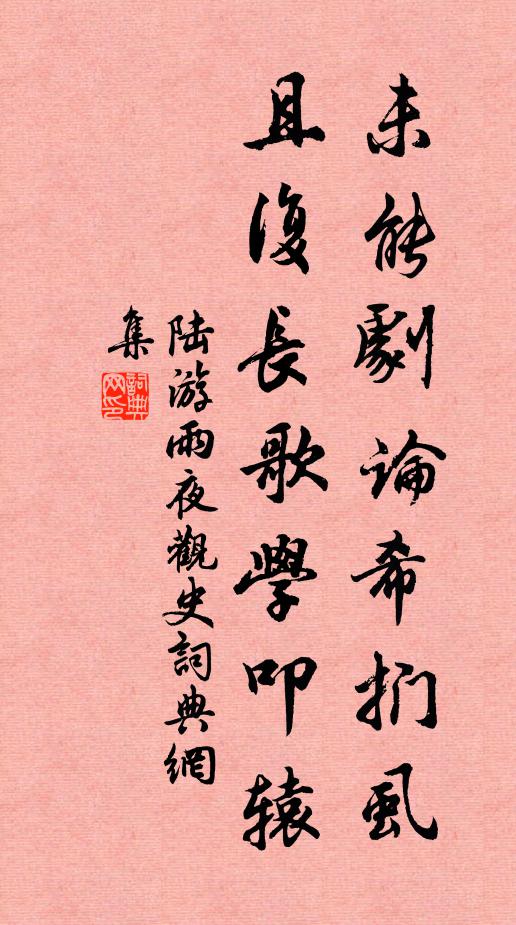 未能劇論希捫虱
且復長歌學叩辕
陆游雨夜觀史詞典網
集
詞典网印